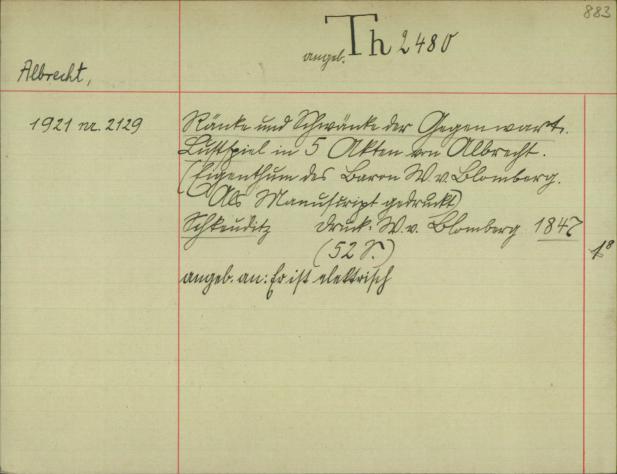 883
angeb. Th 2480
Albrecht,
1921 nr. 2129
Ränke und Schwänke der Gegenwart.
Lustspiel in 5 Akten von Albrecht.
(Eigenthum des Baron W. v. Blomberg.
Als Manuscript gedruckt)
Schkeuditz Druck: W. v. Blomberg 1847
8°
(52 S.)
angeb. an: Er ist elektrisch